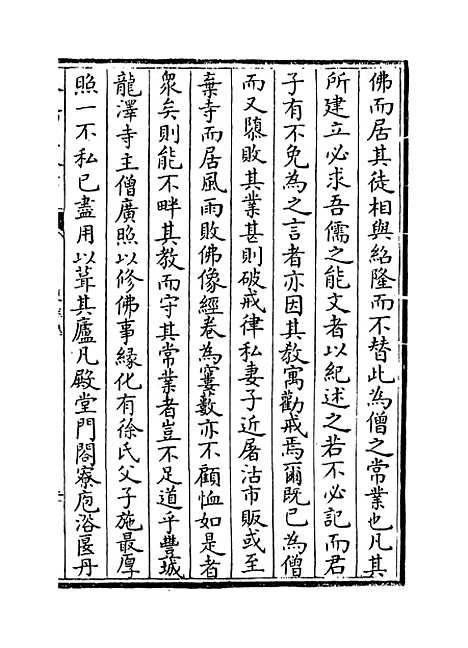 佛而居其徒相與紹隆而不替此為僧之常業也凡其
所建立必求吾儒之能文者以紀述之若不必記而君
子有不免為之言者亦因其教寓勸戒焉爾既已為僧
而又隳敗其業甚則破戒律私妻子近屠沽市販或至
棄寺而居風雨敗佛像經卷為窶藪亦不顧恤如是者
眾矣則能不畔其教而守其常業者豈不足道乎豐城
龍澤寺主僧廣照以修佛事緣化有徐氏父子施最厚
照一不私已盡用以葺其廬凡殿堂門閣寮庖浴匽丹